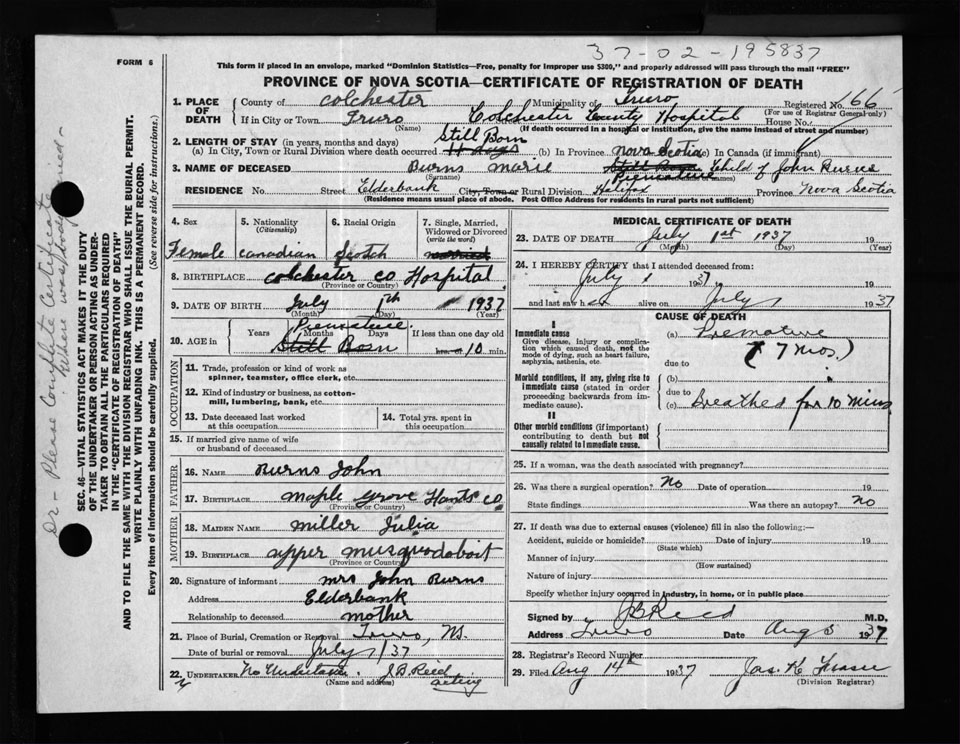 37-02-195837
FORM 6
This form if placed in an envelope, marked "Dominion Statistics—Free, penalty for improper use $300," and properly addressed will pass through the mail "FREE"
PROVINCE OF NOVA SCOTIA—CERTIFICATE OF REGISTRATION OF DEATH
1. PLACE OF DEATH { County of Colchester Municipality of Truro Registered No. 166
(For use of Registrar General only)
If in City or Town Truro Colchester County Hospital House No.
(Name) (If death occurred in a hospital or Institution, give the name instead of street and number)
2. LENGTH OF STAY (in years, months and days) Still Born
(a) In City, Town or Rural Division where death occurred (b) In Province Nova Scotia (c) In Canada (if immigrant)
3. NAME OF DECEASED Burns Marie Still Born Premature Child of John Burns
(Surname)
RESIDENCE No. Street Elderbank City, Town or Rural Division Halifax Province Nova Scotia
(Residence means usual place of abode. Post Office Address for residents in rural parts not sufficient)
4. Sex 5. Nationality (Citizenship) 6. Racial Origin 7. Single, Married, Widowed or Divorced (write the word)
Female Canadian Scotch married
8. BIRTHPLACE Colchester Co Hospital
(Province or Country)
9. DATE OF BIRTH July 1th 1937
(Month) (Day) (Year)
10. AGE in { Years Months Days If less than one day old
Premature Still Born hrs. or 10 min.
OCCUPATION
11. Trade, profession or kind of work as spinner, teamster, office clerk, etc.
12. Kind of industry or business, as cotton-mill, lumbering, bank, etc.
13. Date deceased last worked at this occupation
14. Total yrs. spent in this occupation
15. If married give name of wife or husband of deceased
FATHER
16. NAME Burns John
17. BIRTHPLACE Maple Grove Hants Co
(Province or Country)
MOTHER
18. MAIDEN NAME Miller Julia
19. BIRTHPLACE Upper Musquodoboit
(Province or Country)
20. Signature of informant Mrs John Burns
Address Elderbank
Relationship to deceased mother
21. Place of Burial, Cremation or Removal Truro, N.S.
Date of burial or removal July 1/37
22. UNDERTAKER No Undertaker J.B. Reed acting
(Name and address)
MEDICAL CERTIFICATE OF DEATH
23. DATE OF DEATH July 1st 1937 19
(Month) (Day) (Year)
24. I HEREBY CERTIFY that I attended deceased from:
July 1 1937
and last saw h er alive on July 1 1937
CAUSE OF DEATH
I
Immediate cause
Give disease, injury or complication which caused death, not the mode of dying, such as heart failure, asphyxia, asthenia, etc.
(a) Premature
(7 mos.)
due to
Morbid conditions, if any, giving rise to immediate cause (stated in order proceeding backwards from immediate cause).
(b)
due to
(c) Breathed for 10 mins
II
Other morbid conditions (if important) contributing to death but not causally related to immediate cause.
25. If a woman, was the death associated with pregnancy?
26. Was there a surgical operation? No Date of operation 19
State findings Was there an autopsy? no
27. If death was due to external causes (violence) fill in also the following:—
Accident, suicide or homicide? Date of injury 19
(State which)
Manner of injury
(How sustained)
Nature of injury
Specify whether injury occurred in industry, in home, or in public place
Signed by JB Reed M.D.
Address Truro Date Aug 5 1937
28. Registrar's Record Number
29. Filed Aug 14th 1937 Jas. K Fraser
(Division Registrar)
Dr - Please Complete Certificate
SEC. 46—VITAL STATISTICS ACT MAKES IT THE DUTY
OF THE UNDERTAKER OR PERSON ACTING AS UNDER-
TAKER TO OBTAIN ALL THE PARTICULARS REQUIRED
IN THE "CERTIFICATE OF REGISTRATION OF DEATH"
AND TO FILE THE SAME WITH THE DIVISION REGISTRAR WHO SHALL ISSUE THE BURIAL PERMIT.
WRITE PLAINLY WITH UNFADING INK. THIS IS A PERMANENT RECORD.
Every item of information should be carefully supplied. (See reverse side for instructions.)